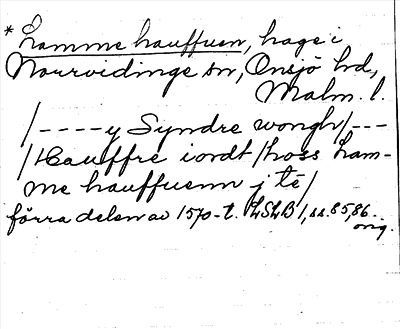 * Lamme hauffuen, hage i
Norrvidinge sn, Onsjö hd,
Malm. l.
/----y Syndre wongh/---
/Hauffre iordt/hoss Lam-
me hauffuenn j te/
förra delen av 1570-t. LSLB 1, ss. 85, 86.
orig.